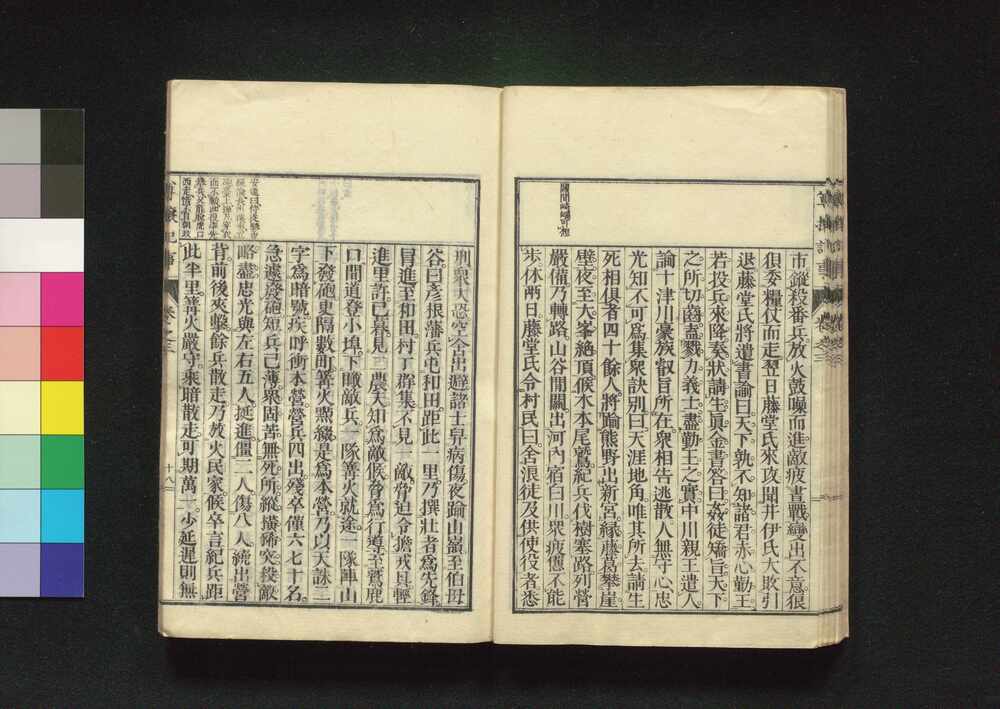 市蹤殺番兵。放火鼓噪而進。敵疲晝戰。變出不意。狼
狽委糧仗而走。翌日藤堂氏來攻。聞井伊氏大敗引
退。藤堂氏將遺書諭曰。天下孰不知諸君赤心勤王。
若投兵來降。奏狀請生。眞金書答曰。奸徒矯旨。天下
之所切齒。盍戮力義士。盡勤王之實。中川親王遣人
諭十津川豪族。叡旨所在。衆相告逃散。人無守心。忠
光知不可爲。集衆訣別曰。天涯地角。唯其所去。請生
死相俱者四十餘人。將踰熊野出新宮。緣藤葛攀崖
壁。夜至大峯絕頂。候木本尾鷲。紀兵伐樹塞路。列營
嚴備。乃轉路。山谷間關。出河內。宿白川。衆疲憊不能
步。休兩日。藤堂氏令村民曰。舍浪徒及供使役者悉
間關崎嶇可想
刑。衆大恐。空舍出避。諸士舁病傷。夜踰山嶽。至伯母
谷。曰彥根藩兵屯和田。距此一里。乃撰壯者爲先鋒。
冒進至和田村。丁群集不見一敵。脅迫令擔戎具。輕
進里許。已暮。見一農夫。知爲敵候。脅爲行導。至鷲鹿
口。間道登小埠。下瞰敵兵。一隊篝火就途。一隊陣山
下發砲。更隔數町篝火照綴。是爲本營。乃以天誅二
字爲暗號。疾呼衝本營。營兵四出。殘卒僅六七十名。
急遽發砲。短兵已薄。衆固苦無死所。縱橫衝突。殺敵
略盡。忠光與左右五人挺進。僵二人。傷八人。繞出營
背。前後夾擊。餘兵散走。乃火民家。候卒言紀兵距
此半里。篝火嚴守。乘暗散走。可期萬一。少延遲則無
卷之三
十八